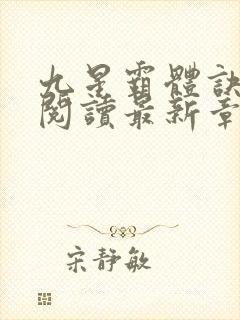 九星霸體訣
閱讀最新章
宋靜敏